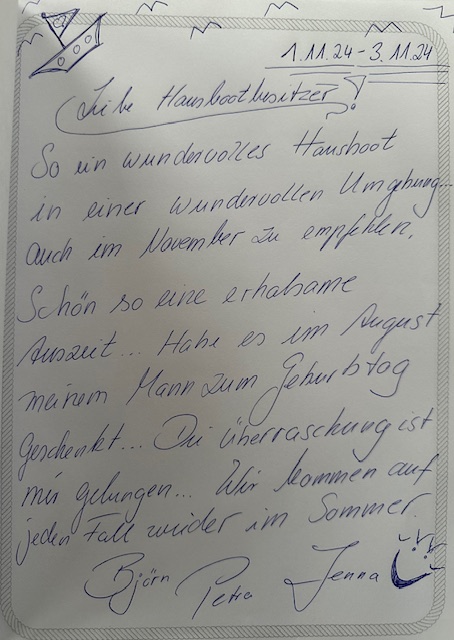 1.11.24 - 3.11.24
Liebe Hausbootbesitzer!
So ein wundervolles Hausboot
in einer wundervollen Umgebung...
auch im November zu empfehlen.
Schön so eine erholsame
Auszeit... Habe es im August
meinem Mann zum Geburtstag
geschenkt... Die Überraschung ist
mir gelungen... Wir kommen auf
jeden Fall wieder im Sommer.
Björn Petra Jenna